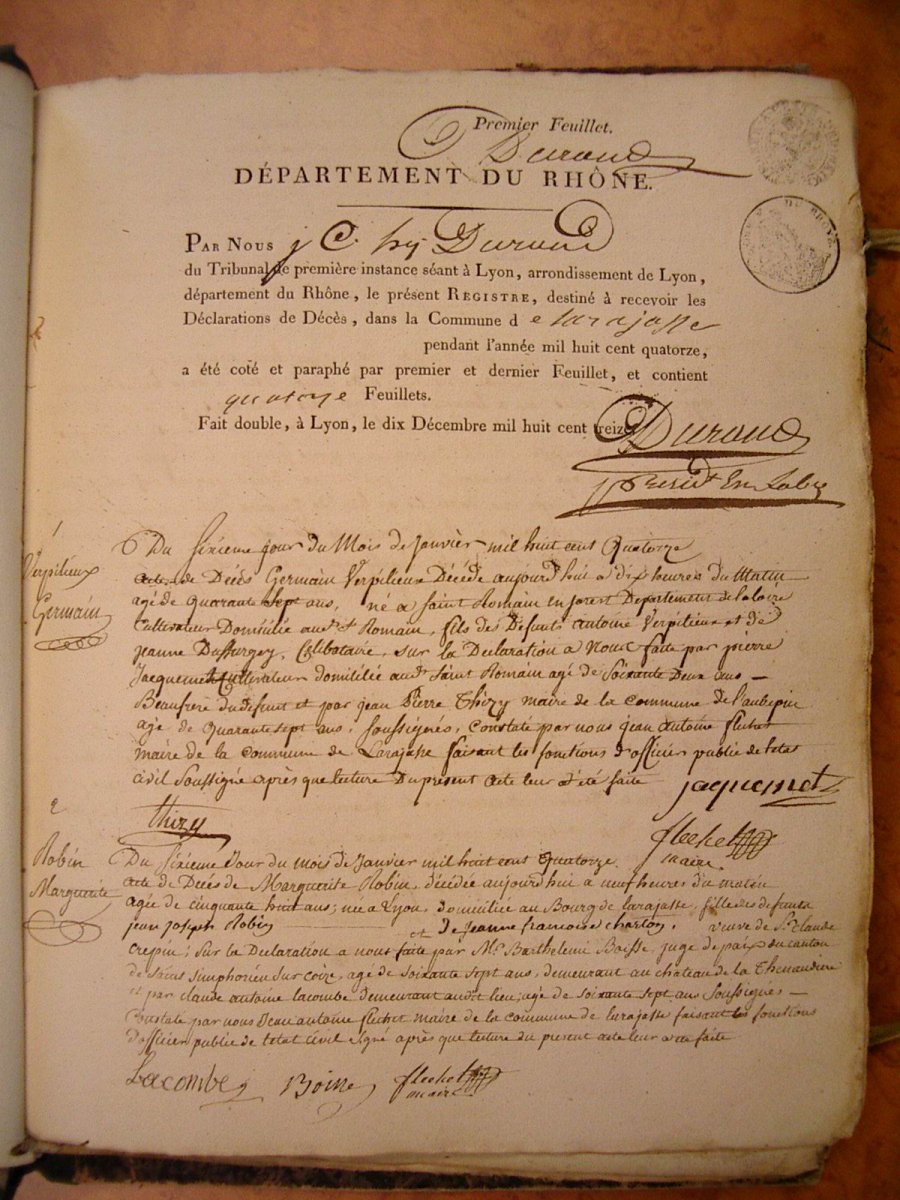 Premier Feuillet.
Durand
DÉPARTEMENT DU RHÔNE.
PAR NOUS j C Durand
du Tribunal de première instance séant à Lyon, arrondissement de Lyon,
département du Rhône, le présent REGISTRE, destiné à recevoir les
Déclarations de Décès, dans la Commune d e Larajasse
pendant l'année mil huit cent quatorze,
a été coté et paraphé par premier et dernier Feuillet, et contient
quatorze Feuillets.
Fait double, à Lyon, le dix Décembre mil huit cent treize
Durand
DU RHÔNE
1
Verpilieux
Germain
Du Sixieme jour du Mois de Janvier mil huit cent Quatorze
acte de Décès Germain Verpilieux Décédé aujourd'hui a dix heures du Matin
agé de quarante sept ans, né a Saint Romain en forest Departement de la loire
Cultivateur Domicilié aud. St Romain, fils des Defunts Antoine Verpilieux et de
jeanne Duffurgey, Celibataire, sur la Declaration a Nous faite par pierre
Jacquemet Cultivateur domicilié aud. Saint Romain agé de Soixante Deux ans
Beaufrere du defunt et par jean Pierre Thizy maire de la commune de l'aubepin
agé de Quarante sept ans, Soussignés, Constaté par nous jean Antoine flechet
maire de la commune de Larajasse faisant les fonctions d'officier public de l'etat
civil Soussigné après que lecture Du présent acte leur a été faite
jaquemet
thizy
flechet
maire
2
Robin
Marguerite
Du Sixieme Jour du mois de Janvier mil huit cent Quatorze
acte de Décés de Marguerite Robin, décédée aujourd'hui a neuf heures du matin
agée de cinquante huit ans; née a Lyon, domiciliée au Bourg de larajasse, fille des defunts
jean joseph Robin et de Jeanne francoise charton, veuve de Sr. Claude
Crepin; Sur la Declaration a nous faite par Mr. Barthelemi Boisse juge de paix du canton
de Saint Simphorien sur coize, agé de soixante sept ans, demeurant au chateau de la Thenaudiere
et par claude antoine lacombe demeurant audit lieu; agé de soixante sept ans Soussignés,
Constaté par nous Jean antoine flechet maire de la commune de larajasse faisant les fonctions
d'officier public de l'etat civil signé après que lecture du present acte leur a été faite
Lacombe Boisse flechet
maire